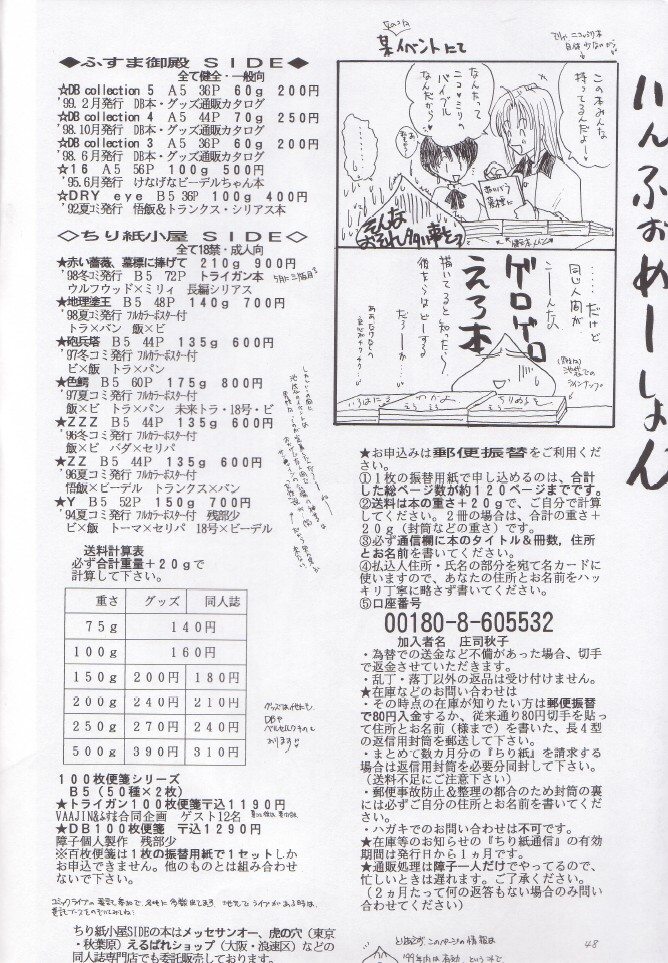 いんふぉめーしょん
某イベントにて
この本みんな
持ってるんだよー
なんたって
ニコ×ミリの
バイブル
なんだから
……だけど
同じ人間が
こーんなの
ゲロゲロ
えろ本
描いてると知ったら
◆ふすま御殿 SIDE◆
全て健全・一般向
☆DB collection 5 A5 36P 60g 200円
'99.2月発行 DB本・グッズ通販カタログ
☆DB collection 4 A5 44P 70g 250円
'98.10月発行 DB本・グッズ通販カタログ
☆DB collection 3 A5 36P 60g 200円
'98.6月発行 DB本・グッズ通販カタログ
☆16 A5 56P 100g 500円
'95.6月発行 けなげなビーデルちゃん本
☆DRY eye B5 36P 100g 400円
'92夏コミ発行 悟飯&トランクス・シリアス本
◇ちり紙小屋 SIDE◇
全て18禁・成人向
★赤い薔薇、墓標に捧げて 210g 900円
'98冬コミ発行 B5 72P トライガン本
ウルフウッド×ミリィ 長編シリアス
★地理塗王 B5 48P 140g 700円
'98夏コミ発行 フルカラーポスター付
トラ×パン 飯×ビ
★砲兵塔 B5 44P 135g 600円
'97冬コミ発行 フルカラーポスター付
ビ×飯 トラ×パン
★色鰐 B5 60P 175g 800円
'97夏コミ発行 フルカラーポスター付
飯×ビ トラ×パン 未来トラ・18号・ビ
★ZZZ B5 44P 135g 600円
'96冬コミ発行 フルカラーポスター付
飯×ビ バグ×セリパ
★ZZ B5 44P 135g 600円
'96夏コミ発行 フルカラーポスター付
悟飯×ビーデル トランクス×パン
★Y B5 52P 150g 700円
'94夏コミ発行 フルカラーポスター付 残部少
ビ×飯 トーマ×セリパ 18号×ビーデル
送料計算表
必ず合計重量+20gで
計算して下さい。
重さ グッズ 同人誌
75g 140円
100g 160円
150g 200円 180円
200g 240円 210円
250g 270円 240円
500g 390円 310円
100枚便箋シリーズ
B5(50種×2枚)
★トライガン100枚便箋〒込1190円
VAAJIN&ふすま合同企画 ゲスト12名
★DB100枚便箋 〒込1290円
障子個人製作 残部少
※百枚便箋は1枚の振替用紙で1セットしか
お申込できません。他のものとは組み合わせ
ないで下さい。
ちり紙小屋SIDEの本はメッセサンオー、虎の穴(東京
・秋葉原)えるぱれショップ(大阪・浪速区)などの
同人誌専門店でも委託販売しております。
★お申込みは郵便振替をご利用くだ
さい。
①1枚の振替用紙で申し込めるのは、合計
した総ページ数が約120ページまでです。
②送料は本の重さ+20gで、ご自分で計算
してください。2冊の場合は、合計の重さ+
20g(封筒などの重さ)です。
③必ず通信欄に本のタイトル&冊数、住所
とお名前を書いてください。
④払込人住所・氏名の部分を宛て名カードに
使いますので、あなたの住所とお名前をハッ
キリ丁寧に略さず書いてください。
⑤口座番号
00180-8-605532
加入者名 庄司秋子
・為替での送金など不備があった場合、切手
で返金させていただきます。
・乱丁・落丁以外の返品は受け付けません。
★在庫などのお問い合わせは
・その時点の在庫が知りたい方は郵便振替
で80円入金するか、従来通り80円切手を貼っ
て住所とお名前(様まで)を書いた、長4型
の返信用封筒を郵送して下さい。
・まとめて数カ月分の『ちり紙』を請求する
場合は返信用封筒を必要分同封して下さい。
(送料不足にご注意下さい)
・郵便事故防止&整理の都合のため封筒の裏
には必ずご自分の住所とお名前を書いてくだ
さい。
・ハガキでのお問い合わせは不可です。
★在庫等のお知らせの『ちり紙通信』の有効
期間は発行日から1ヵ月です。
★通販処理は障子一人だけでやってるので、
忙しいときは遅れます。ご了承ください。
(2ヵ月たって何の返答もない場合のみ問い
合わせてください)
とりあえずこのページの情報は
48